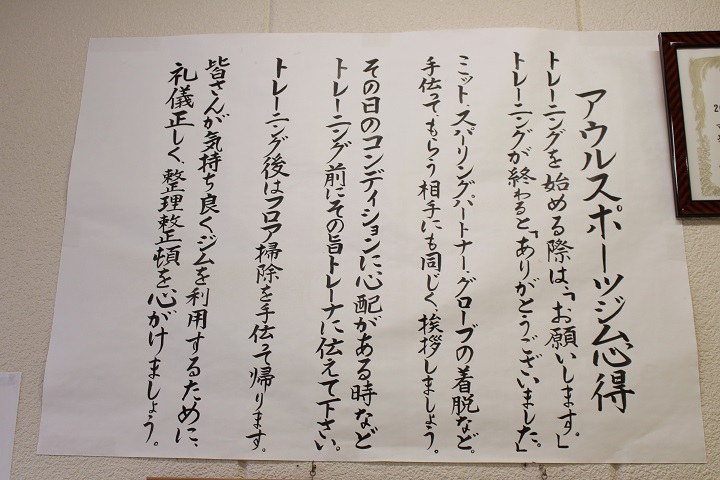 アウルスポーツジム心得
トレーニングを始める際は、「お願いします。」
トレーニングが終わると、「ありがとうございました。」
ミット、スパーリングパートナー、グローブの着脱など。
手伝って、もらう相手にも同じく、挨拶しましょう。
その日のコンディションに心配がある時など
トレーニング前にその旨トレーナに伝えて下さい。
トレーニング後はフロア掃除を手伝って帰ります。
皆さんが気持ち良く、ジムを利用するために、
礼儀正しく、整理整頓を心がけましょう。